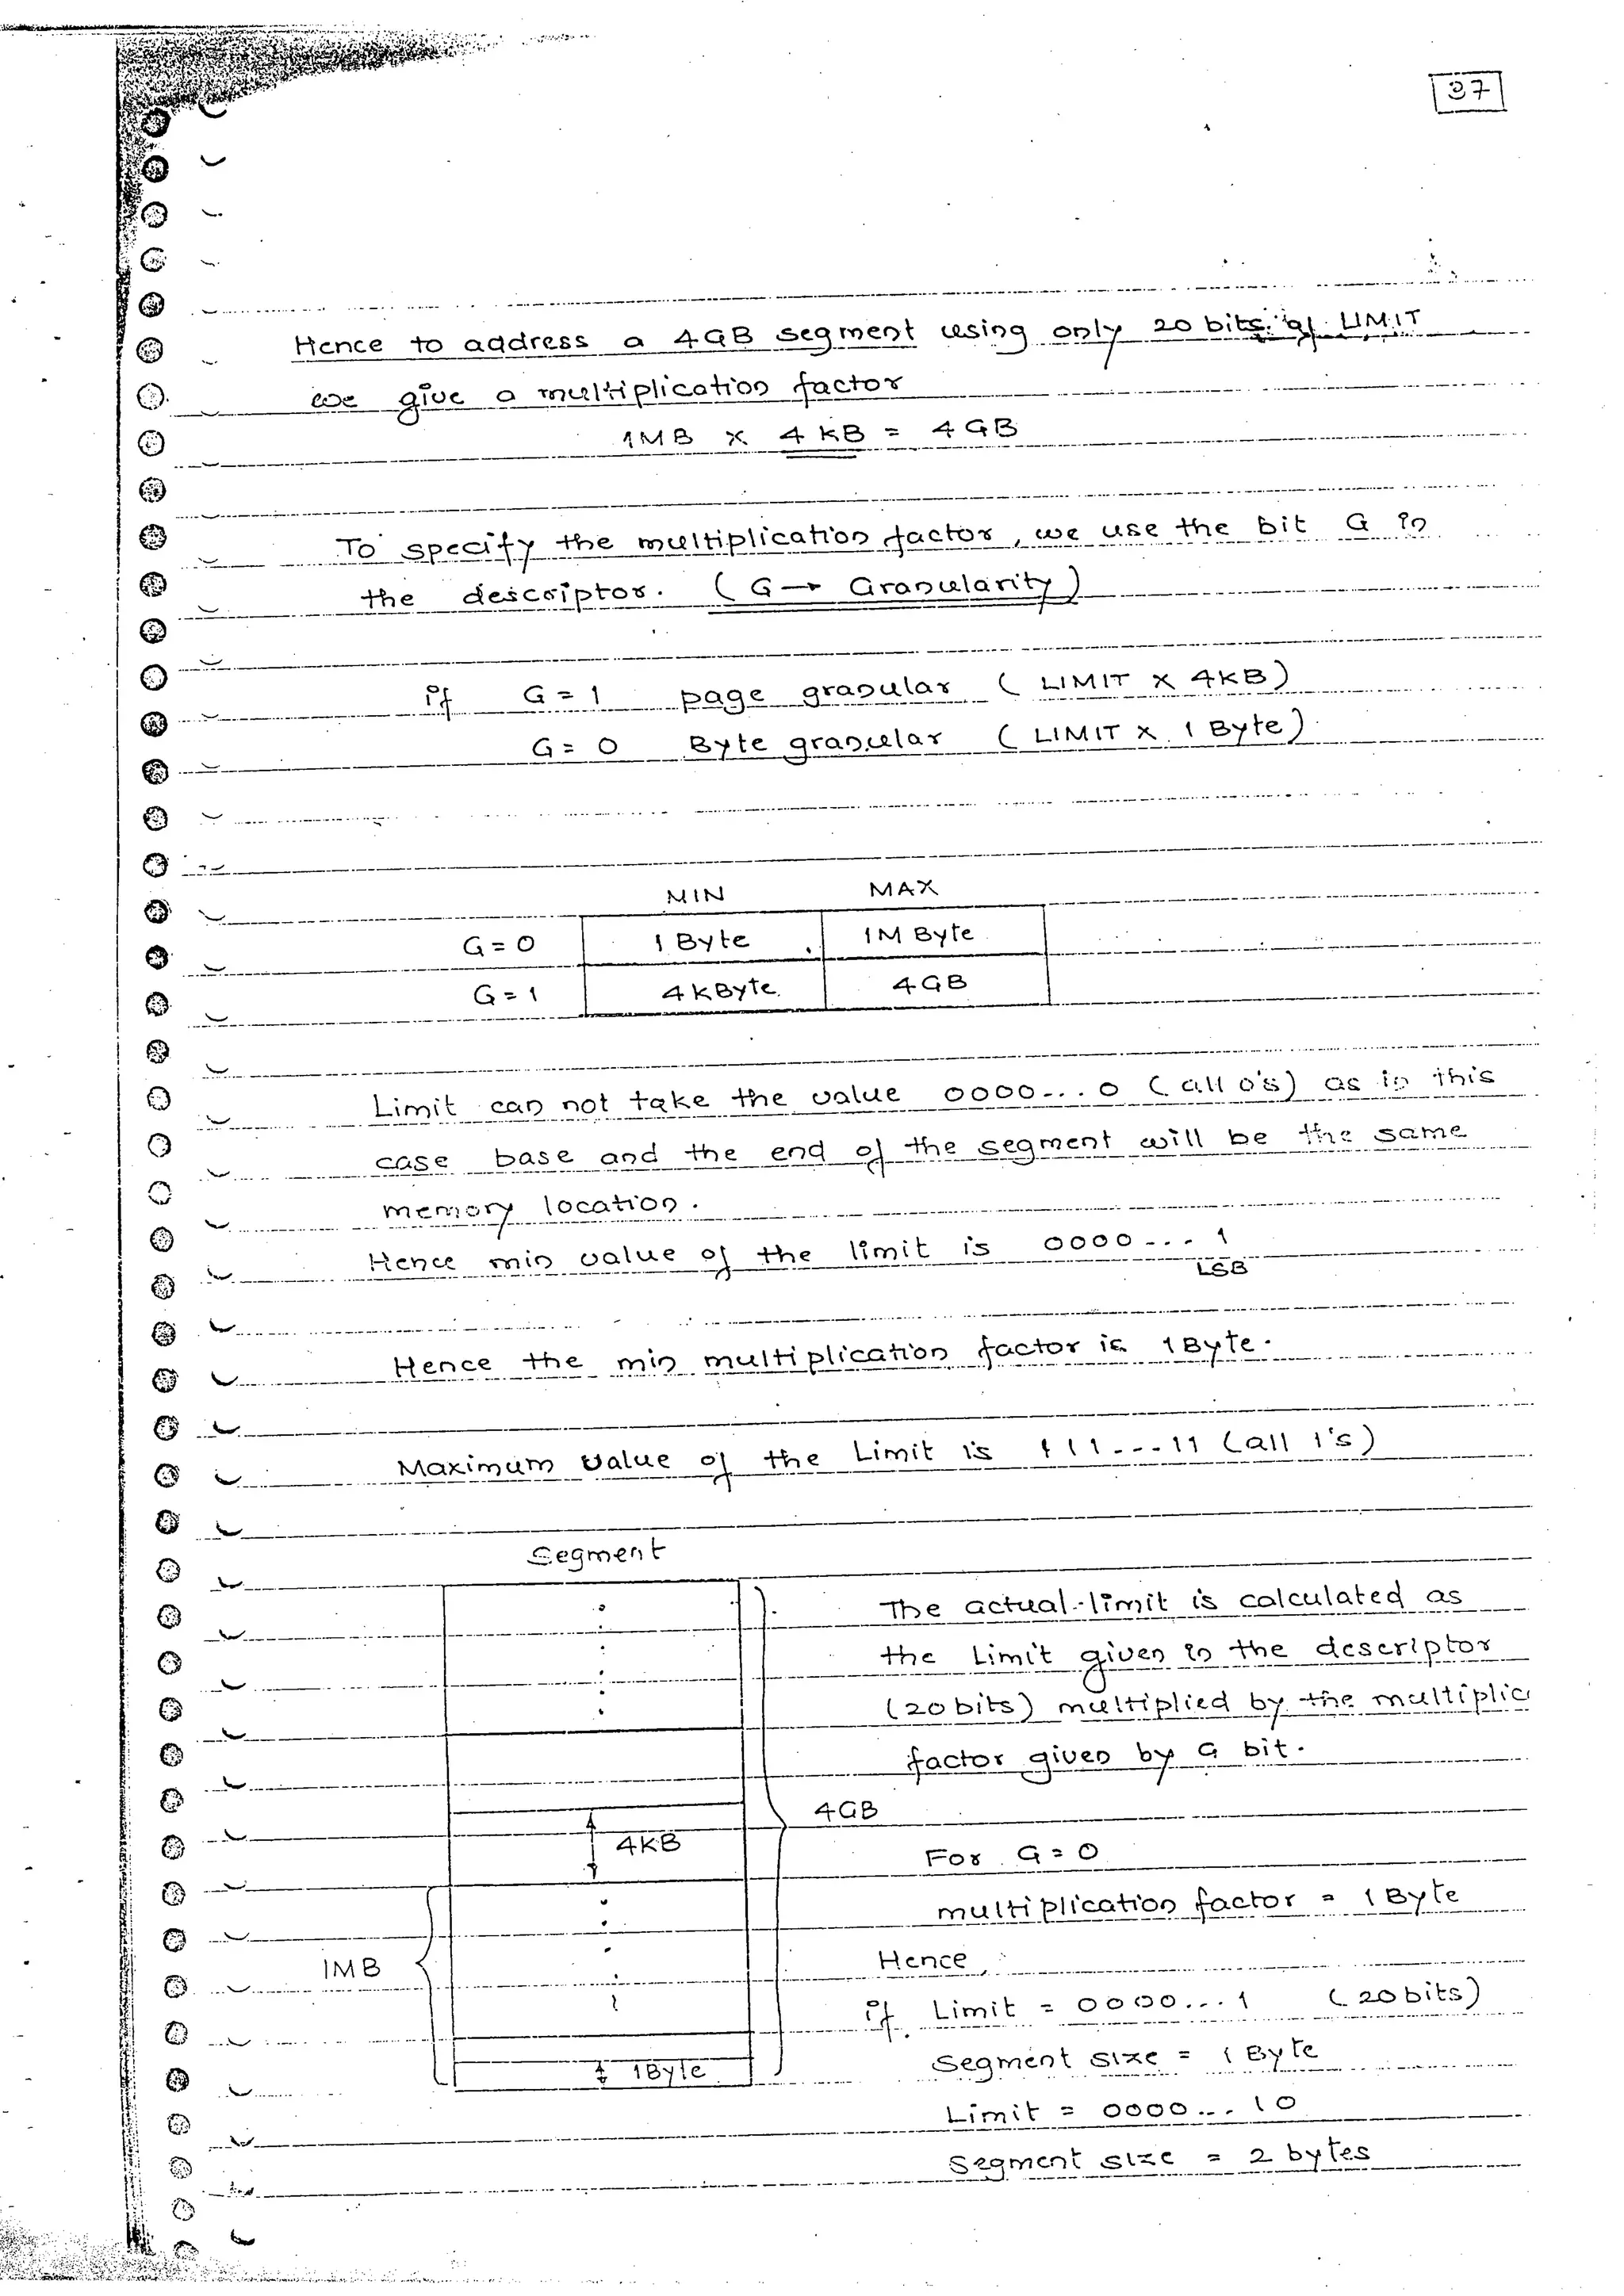 37
Hence to address a 4GB segment using only 20 bits of LIMIT
we give a multiplication factor
1MB × 4KB = 4GB
To specify the multiplication factor, we use the bit G in
the descriptor. (G → Granularity)
if G = 1 page granular (LIMIT × 4KB)
G = 0 Byte granular (LIMIT × 1 Byte)
MIN MAX
G = 0 1 Byte 1M Byte
G = 1 4KByte 4GB
Limit can not take the value 0000...0 (all 0's) as in this
case base and the end of the segment will be the same
memory location.
Hence min value of the limit is 0000...1
LSB
Hence the min multiplication factor is 1Byte.
Maximum value of the Limit is 111---11 (all 1's)
Segment
4KB
1MB
1Byte
4GB
The actual limit is calculated as
the Limit given in the descriptor
(20bits) multiplied by the multiplic
factor given by G bit.
For G = 0
multiplication factor = 1Byte
Hence,
if Limit = 0000...1 (20bits)
segment size = 1 Byte
Limit = 0000...10
Segment size = 2 bytes